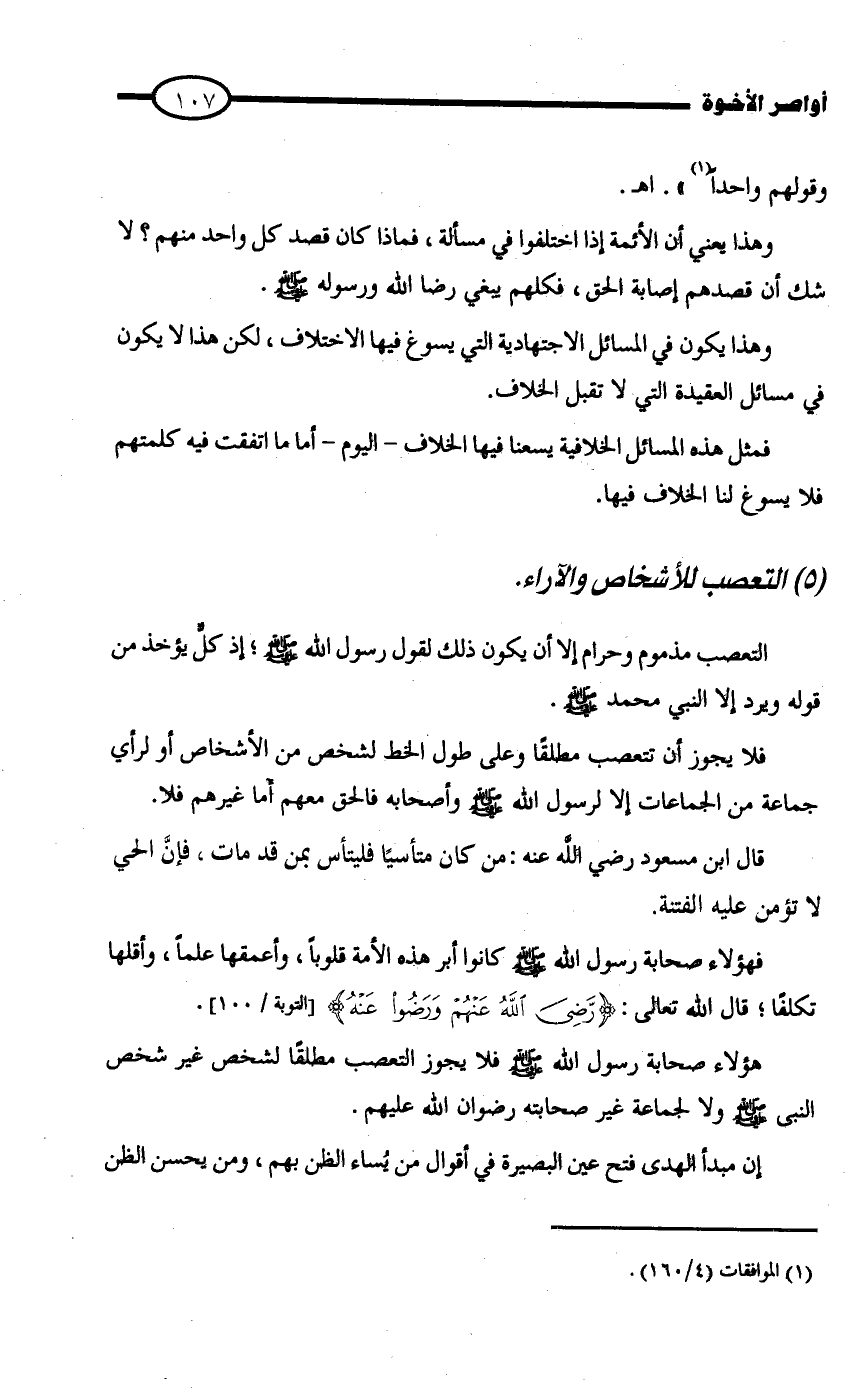 أواصر الأخوة ١٠٧
وقولهم واحداً(١)» . اهـ .
وهذا يعني أن الأئمة إذا اختلفوا في مسألة ، فماذا كان قصد كل واحد منهم ؟ لا
شك أن قصدهم إصابة الحق ، فكلهم يبغي رضا الله ورسوله ﷺ .
وهذا يكون في المسائل الاجتهادية التي يسوغ فيها الاختلاف ، لكن هذا لا يكون
في مسائل العقيدة التي لا تقبل الخلاف.
فمثل هذه المسائل الخلافية يسعنا فيها الخلاف – اليوم – أما ما اتفقت فيه كلمتهم
فلا يسوغ لنا الخلاف فيها.
(٥) التعصب للأشخاص والآراء.
التعصب مذموم وحرام إلا أن يكون ذلك لقول رسول الله ﷺ ؛ إذ كلٌّ يؤخذ من
قوله ويرد إلا النبي محمد ﷺ .
فلا يجوز أن تتعصب مطلقًا وعلى طول الخط لشخص من الأشخاص أو لرأي
جماعة من الجماعات إلا لرسول الله ﷺ وأصحابه فالحق معهم أما غيرهم فلا.
قال ابن مسعود رضي اللَّه عنه : من كان متأسيًا فليتأس بمن قد مات ، فإنَّ الحي
لا تؤمن عليه الفتنة.
فهؤلاء صحابة رسول الله ﷺ كانوا أبر هذه الأمة قلوباً ، وأعمقها علماً ، وأقلها
تكلفًا ؛ قال الله تعالى : ﴿رَّضِيَ ٱللَّهُ عَنْهُمْ وَرَضُوا۟ عَنْهُ﴾ [التوبة / ١٠٠] .
هؤلاء صحابة رسول الله ﷺ فلا يجوز التعصب مطلقًا لشخص غير شخص
النبى ﷺ ولا لجماعة غير صحابته رضوان الله عليهم .
إن مبدأ الهدى فتح عين البصيرة في أقوال من يُساء الظن بهم ، ومن يحسن الظن
(١) الموافقات (٤/ ١٦٠) .